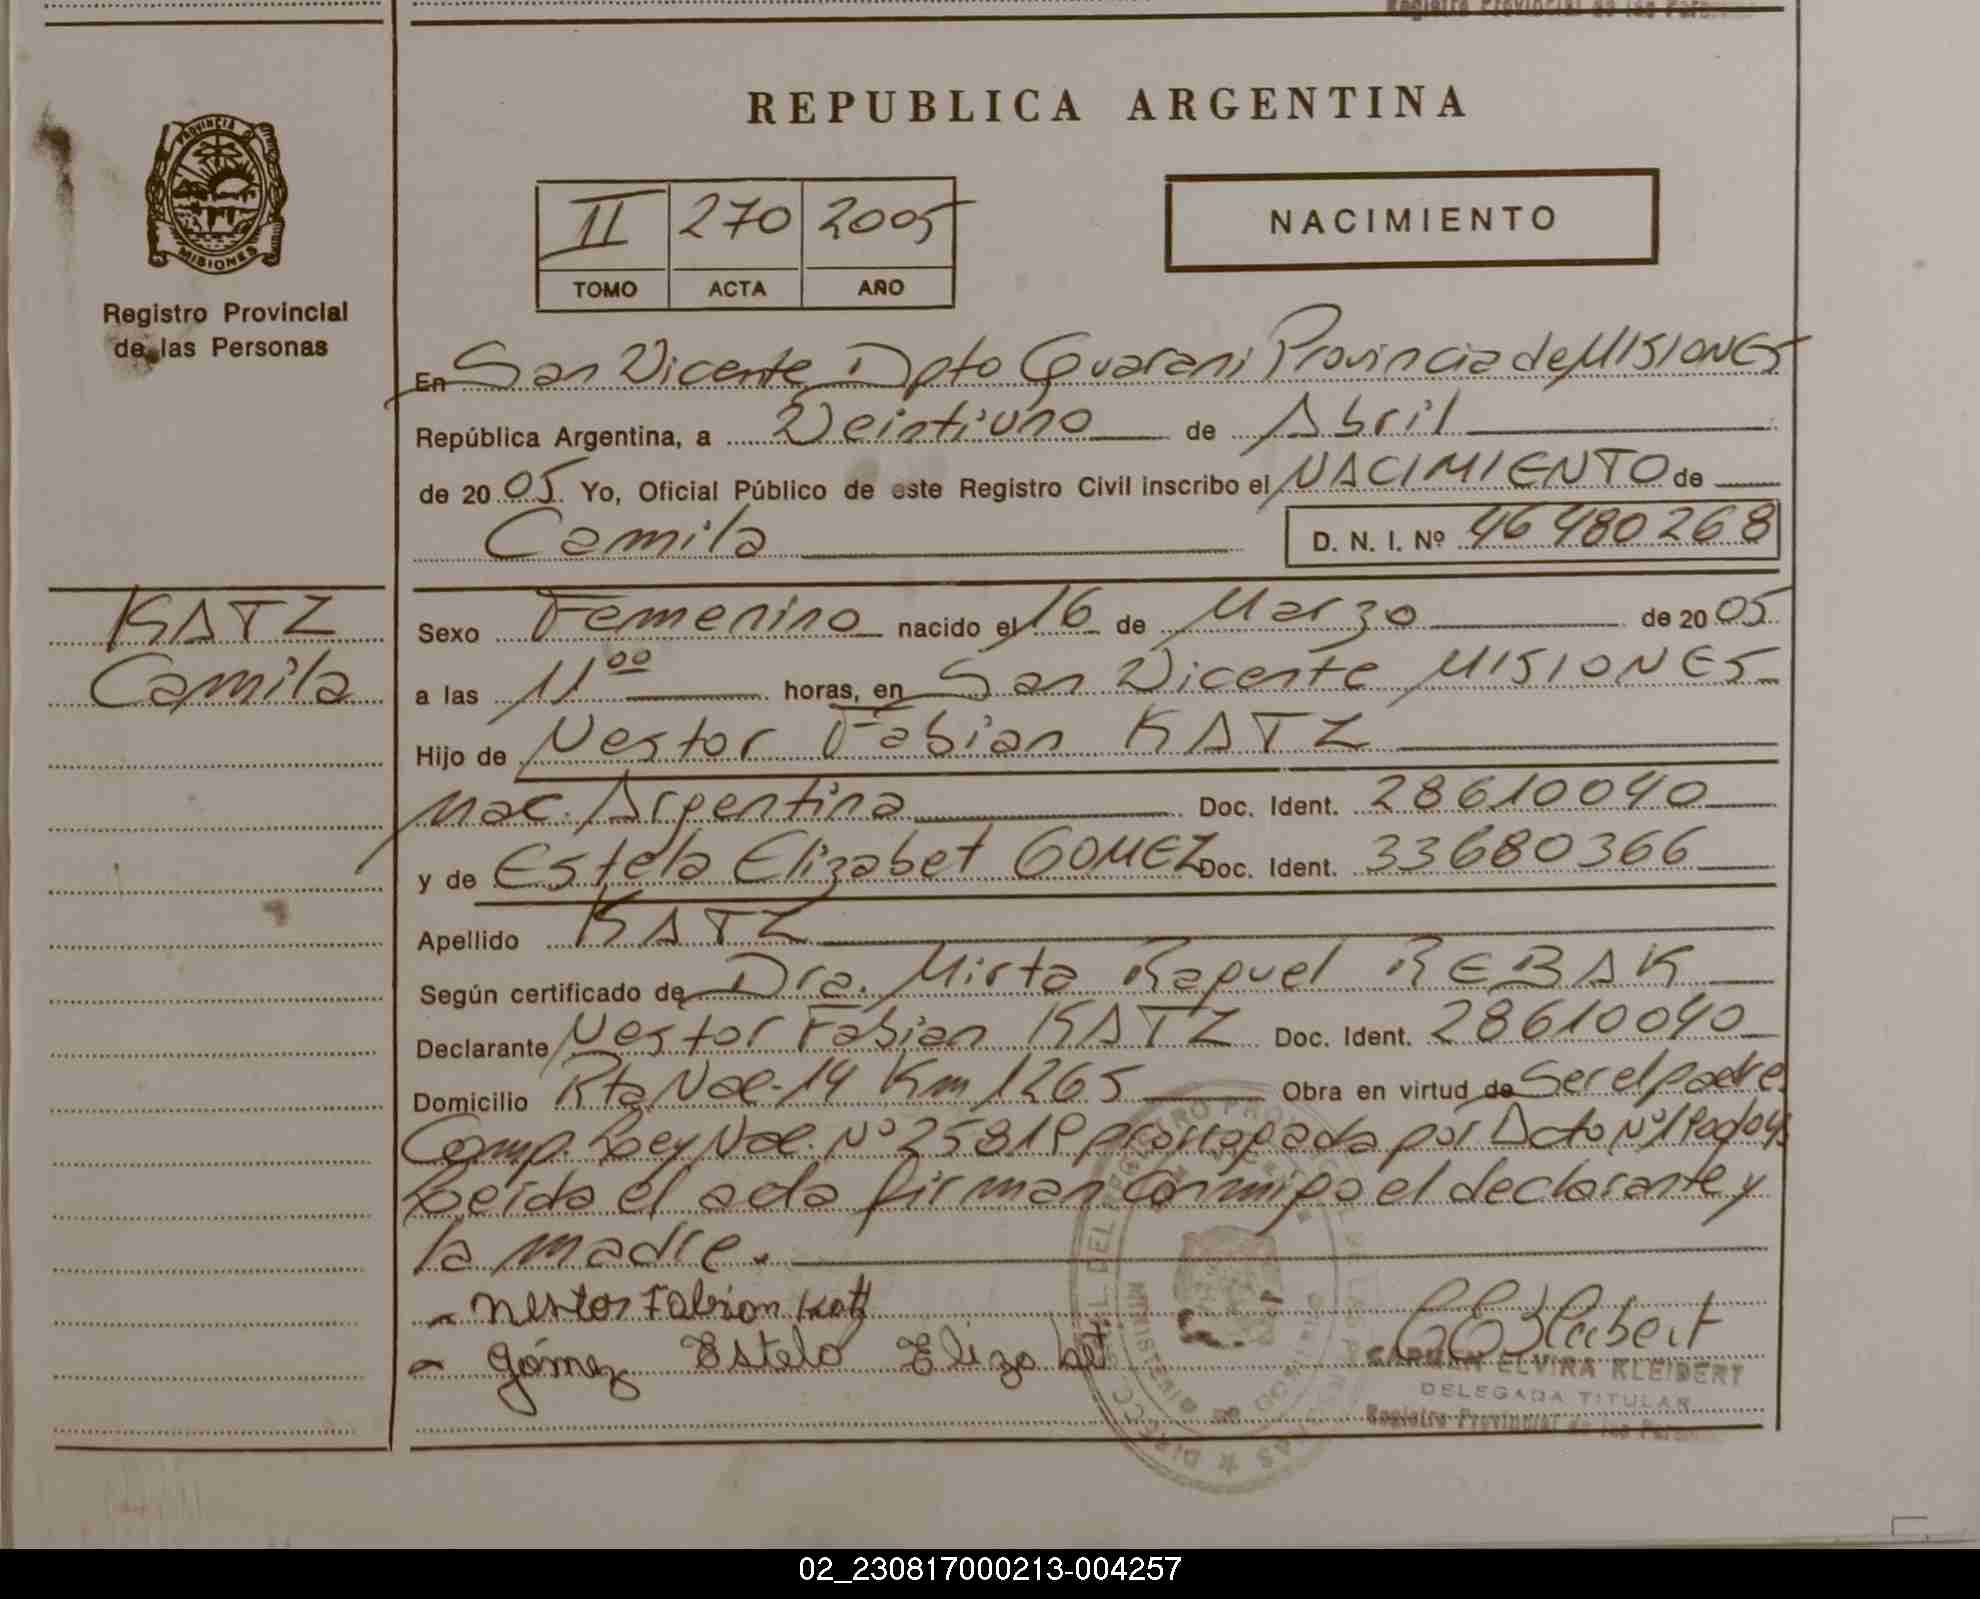 REPUBLICA ARGENTINA
PROVINCIA DE
MISIONES
Registro Provincial
de las Personas
II 270 2005
TOMO ACTA AÑO
NACIMIENTO
En San Vicente Dpto Guarani Provincia de MISIONES
República Argentina, a Veintiuno de Abril
de 20 05. Yo, Oficial Público de este Registro Civil inscribo el NACIMIENTO de
Camila
D. N. I. Nº 46480268
KATZ
Camila
Sexo Femenino nacido el 16 de Marzo de 20 05
a las 11 00 horas, en San Vicente MISIONES
Hijo de Nestor Fabian KATZ
Nac. Argentina Doc. Ident. 28610040
y de Estela Elizabet GOMEZ Doc. Ident. 33680366
Apellido KATZ
Según certificado de Dra. Mirta Raquel REBAK
Declarante Nestor Fabian KATZ Doc. Ident. 28610040
Domicilio Rta Nac-14 Km 1265 Obra en virtud de Ser el padre
Comp. Ley Nac. Nº 25819 prorrogada por Dcto Nº
Leída el acta firman conmigo el declarante y
la madre.
Nestor Fabian Katz
Gómez Estela Elizabet
CARMEN ELVIRA KLEIBERT
DELEGADA TITULAR
Registro Provincial de las Per
02_230817000213-004257